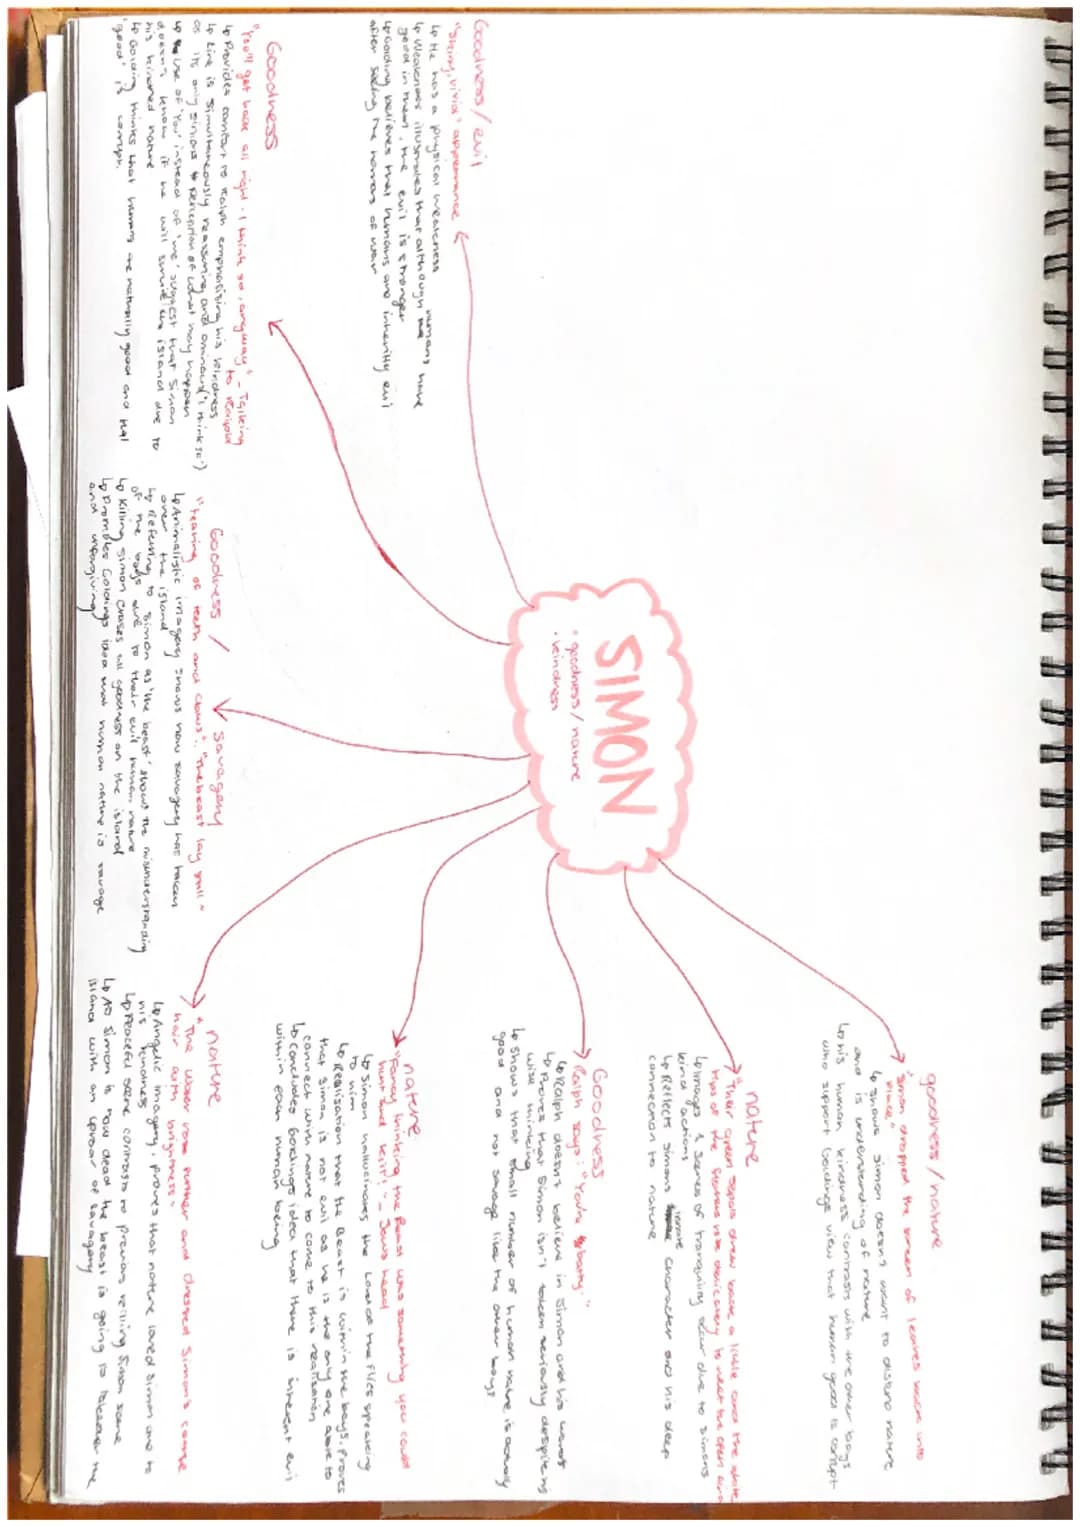 SIMON
• goodness / nature
• kindness
Goodness / evil
"Skinny, vivid" appearance
↳ He has a physical weakness
↳ Weakness illustrates that although humans have
good in them, the evil is stronger
↳ Golding believes that humans are inheritly evil
after seeing the horrors of war
Goodness
"You'll get back all right. I think so, anyway" - Talking
to
↳ Provides comfort to Ralph emphasising his kindness
↳ Line is simultaneously reassuring and ominous ('I think so')
as its only Simons perception of what may happen
↳ Use of 'You' instead of 'we' suggest that Simon
doesn't know if he will survive the island due to
his kindred nature
↳ Golding thinks that humans are naturally good and that
'good' is corrupt.
Goodness / Savagery
"tearing of teeth and claws". "The beast lay still"
↳ Animalistic imagery shows how savagery has taken
over the island
↳ Referring to Simon as 'the beast' shows the misunderstanding
of the boys due to their evil human nature
↳ Killing Simon erases all goodness on the island
↳ Promotes Goldings idea that human nature is savage
and unforgiving
nature
"The water rose further and dressed Simon's coarse
hair with brightness"
↳ Angelic imagery, proves that nature loved Simon due to
his kindness
↳ Peaceful scene contrasts to previous killing Simon scene
↳ As Simon is now dead the beast is going to takeover the
island with an uproar of savagery
nature
"Fancy thinking the Beast was something you could
hunt and kill!" - Sows head
↳ Simon hallucinates the Lord of the Flies speaking
to him
↳ Realisation that the Beast is within the boys. Proves
that Simon is not evil as he is the only one able to
connect with nature to come to this realisation
↳ Concludes Goldings idea that there is inherent evil
within each human being
Goodness
Ralph says: "You're batty."
↳ Ralph doesn't believe in Simon and his words
↳ Proves that Simon isn't taken seriously despite his
wise thinking
↳ Shows that small number of human nature is actually
good and not savage like the other boys
nature
"Their green sepals drew back a little and the white
tips of the flowers rose delicately to meet the open air"
↳ Images & scenes of tranquility occur due to Simons
kind actions
↳ Reflects Simons innate character and his deep
connection to nature
goodness / nature
"Simon dropped the screen of leaves back into
place"
↳ Shows Simon doesn't want to disturb nature
and is understanding of nature
↳ His human kindness contrasts with the other boys
who support Goldings view that human good is corrupt